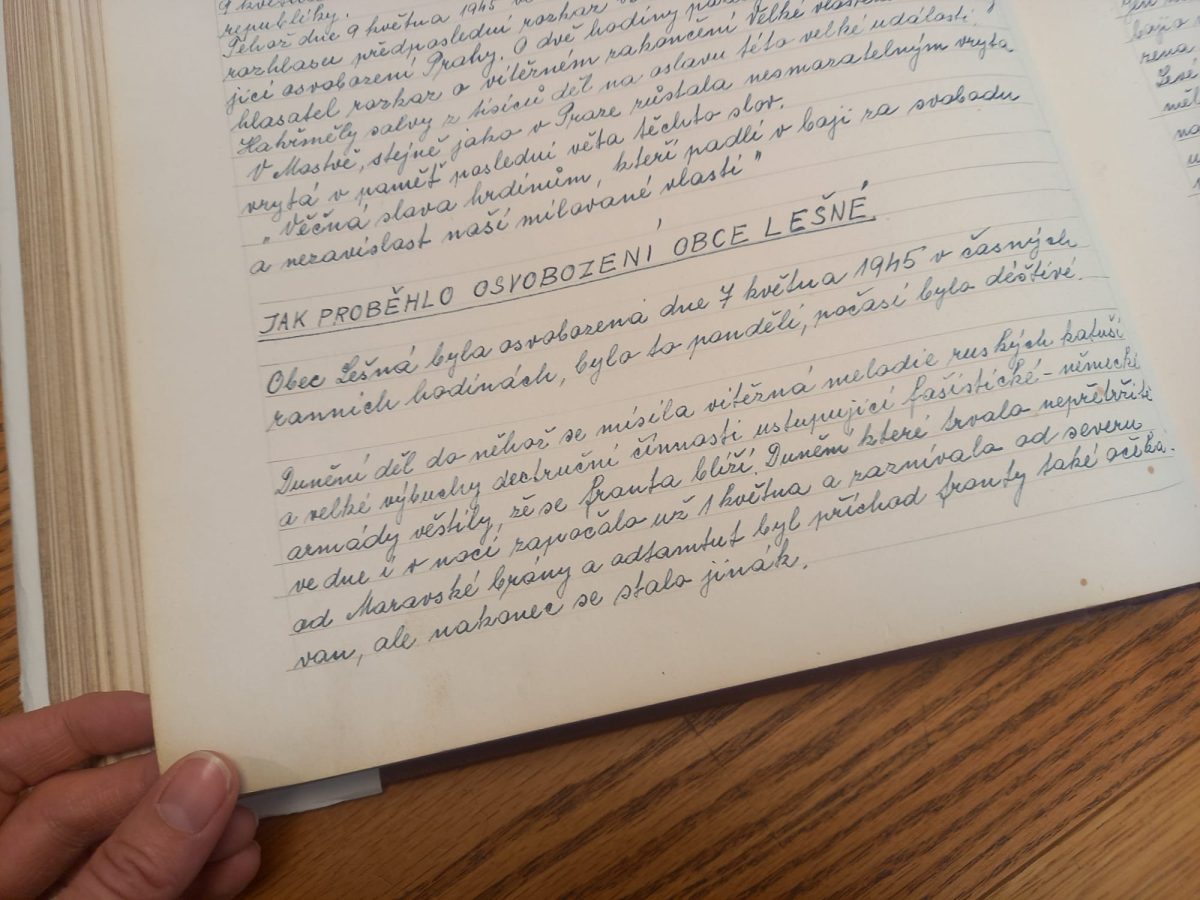 republiky.
Téhož dne 9 května 1945 v
rozhlasu předposlední rozkaz
jící osvobození Prahy. O dvě hodiny
hlasatel rozkaz o vítězném zakončení Velké
Zahřměly salvy z tisíců děl na oslavu této velké události.
V Moskvě, stejně jako v Praze zůstala nesmazatelným vryta
vrytá v paměť poslední věta těchto slov.
„Věčná sláva hrdinům, kteří padli v boji za svobodu
a nezávislost naší milované vlasti"
JAK PROBĚHLO OSVOBOZENÍ OBCE LEŠNÉ.
Obec Lešná byla osvobozená dne 7 května 1945 v časných
ranních hodinách, bylo to pondělí, počasí bylo déštivé.
Dunění děl do něhož se mísila vítězná melodie ruských katuší
a velké výbuchy dectruční činnosti ustupující fašistické - německé
armády věštily, že se fronta blíží. Dunění které trvalo nepřetržitě
ve dne i v noci započalo už 1 května a zaznívalo od severu
od Moravské brány a odtamtut byl příchod fronty také očeká-
van, ale nakonec se stalo jinák.